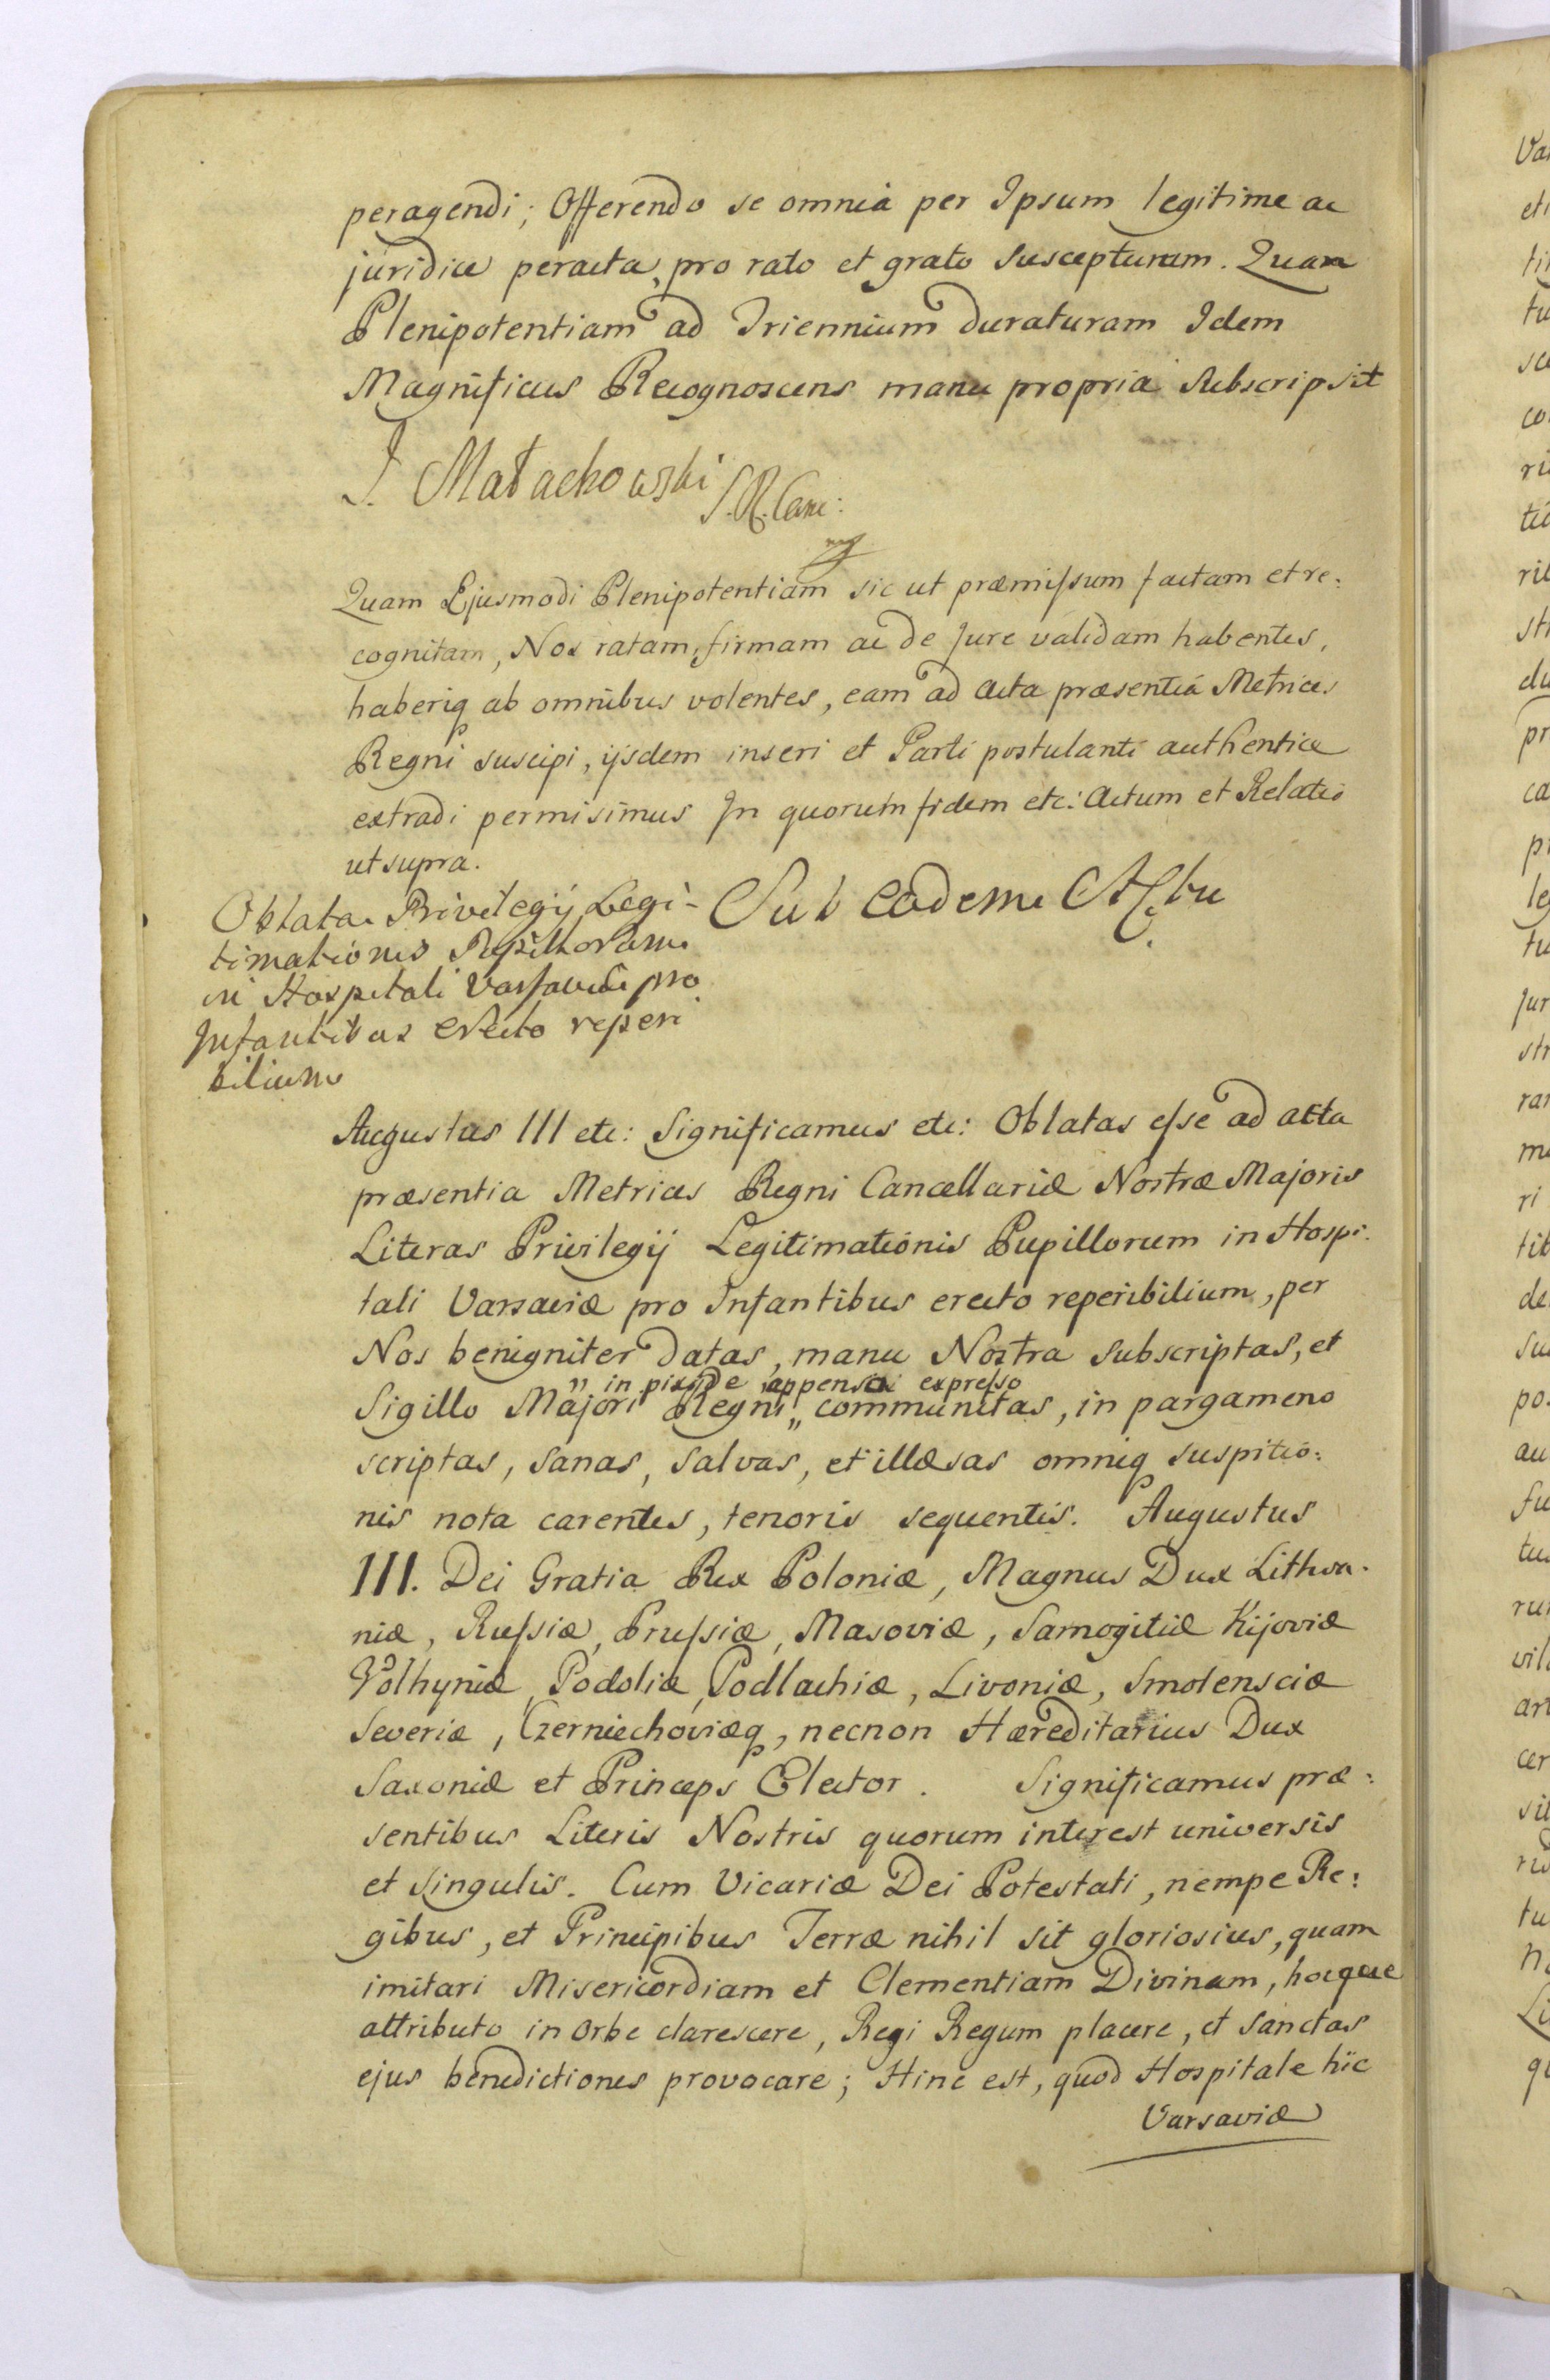 peragendi; Offerendo se omnia per Ipsum legitime ac
juridice peracta, pro rato et grato suscepturum. Quam
Plenipotentiam ad Triennium duraturam Idem
Magnificus Recognoscens manu propria subscripsit
J. Małachowski S.R. Canc:
mp
Quam Ejusmodi Plenipotentiam sic ut præmissum factam et re:
cognitam, Nos ratam, firmam ac de Jure validam habentes,
haberiq ab omnibus volentes, eam ad acta præsentia Metrices
Regni suscipi, ijsdem inseri et Parti postulanti authentice
extradi permisimus In quorum fidem etc: Actum et Relatio
ut supra.
Oblata Privilegij Legi-
timationis Pupillorum
in Hospitali Varsaviæ pro
Infantibus erecto reperi
bilium
Sub eodem Actu
Augustus III etc: Significamus etc: Oblatas esse ad acta
præsentia Metrices Regni Cancellariæ Nostræ Majoris
Literas Privilegij Legitimationis Pupillorum in Hospi:
tali Varsaviæ pro Infantibus erecto reperibilium, per
Nos benigniter datas, manu Nostra subscriptas, et
" in pixide appensa expresso
Sigillo Majori Regni " communitas, in pargameno
scriptas, sanas, salvas, et illæsas omniq suspitio:
nis nota carentes, tenoris sequentis. Augustus
III. Dei Gratia Rex Poloniæ, Magnus Dux Lithva:
niæ, Russiæ, Prussiæ, Masoviæ, Samogitiæ Kijoviæ
Volhyniæ, Podoliæ, Podlachiæ, Livoniæ, Smolensciæ
Severiæ, Czerniechoviæq, necnon Hæreditarius Dux
Saxoniæ et Princeps Elector. Significamus præ:
sentibus Literis Nostris quorum interest universis
et singulis. Cum Vicariæ Dei Potestati, nempe Re:
gibus, et Principibus Terræ nihil sit gloriosius, quam
imitari Misericordiam et Clementiam Divinam, hocque
attributo in orbe clarescere, Regi Regum placere, et sanctas
ejus benedictiones provocare; Hinc est, quod Hospitale hic
Varsaviæ